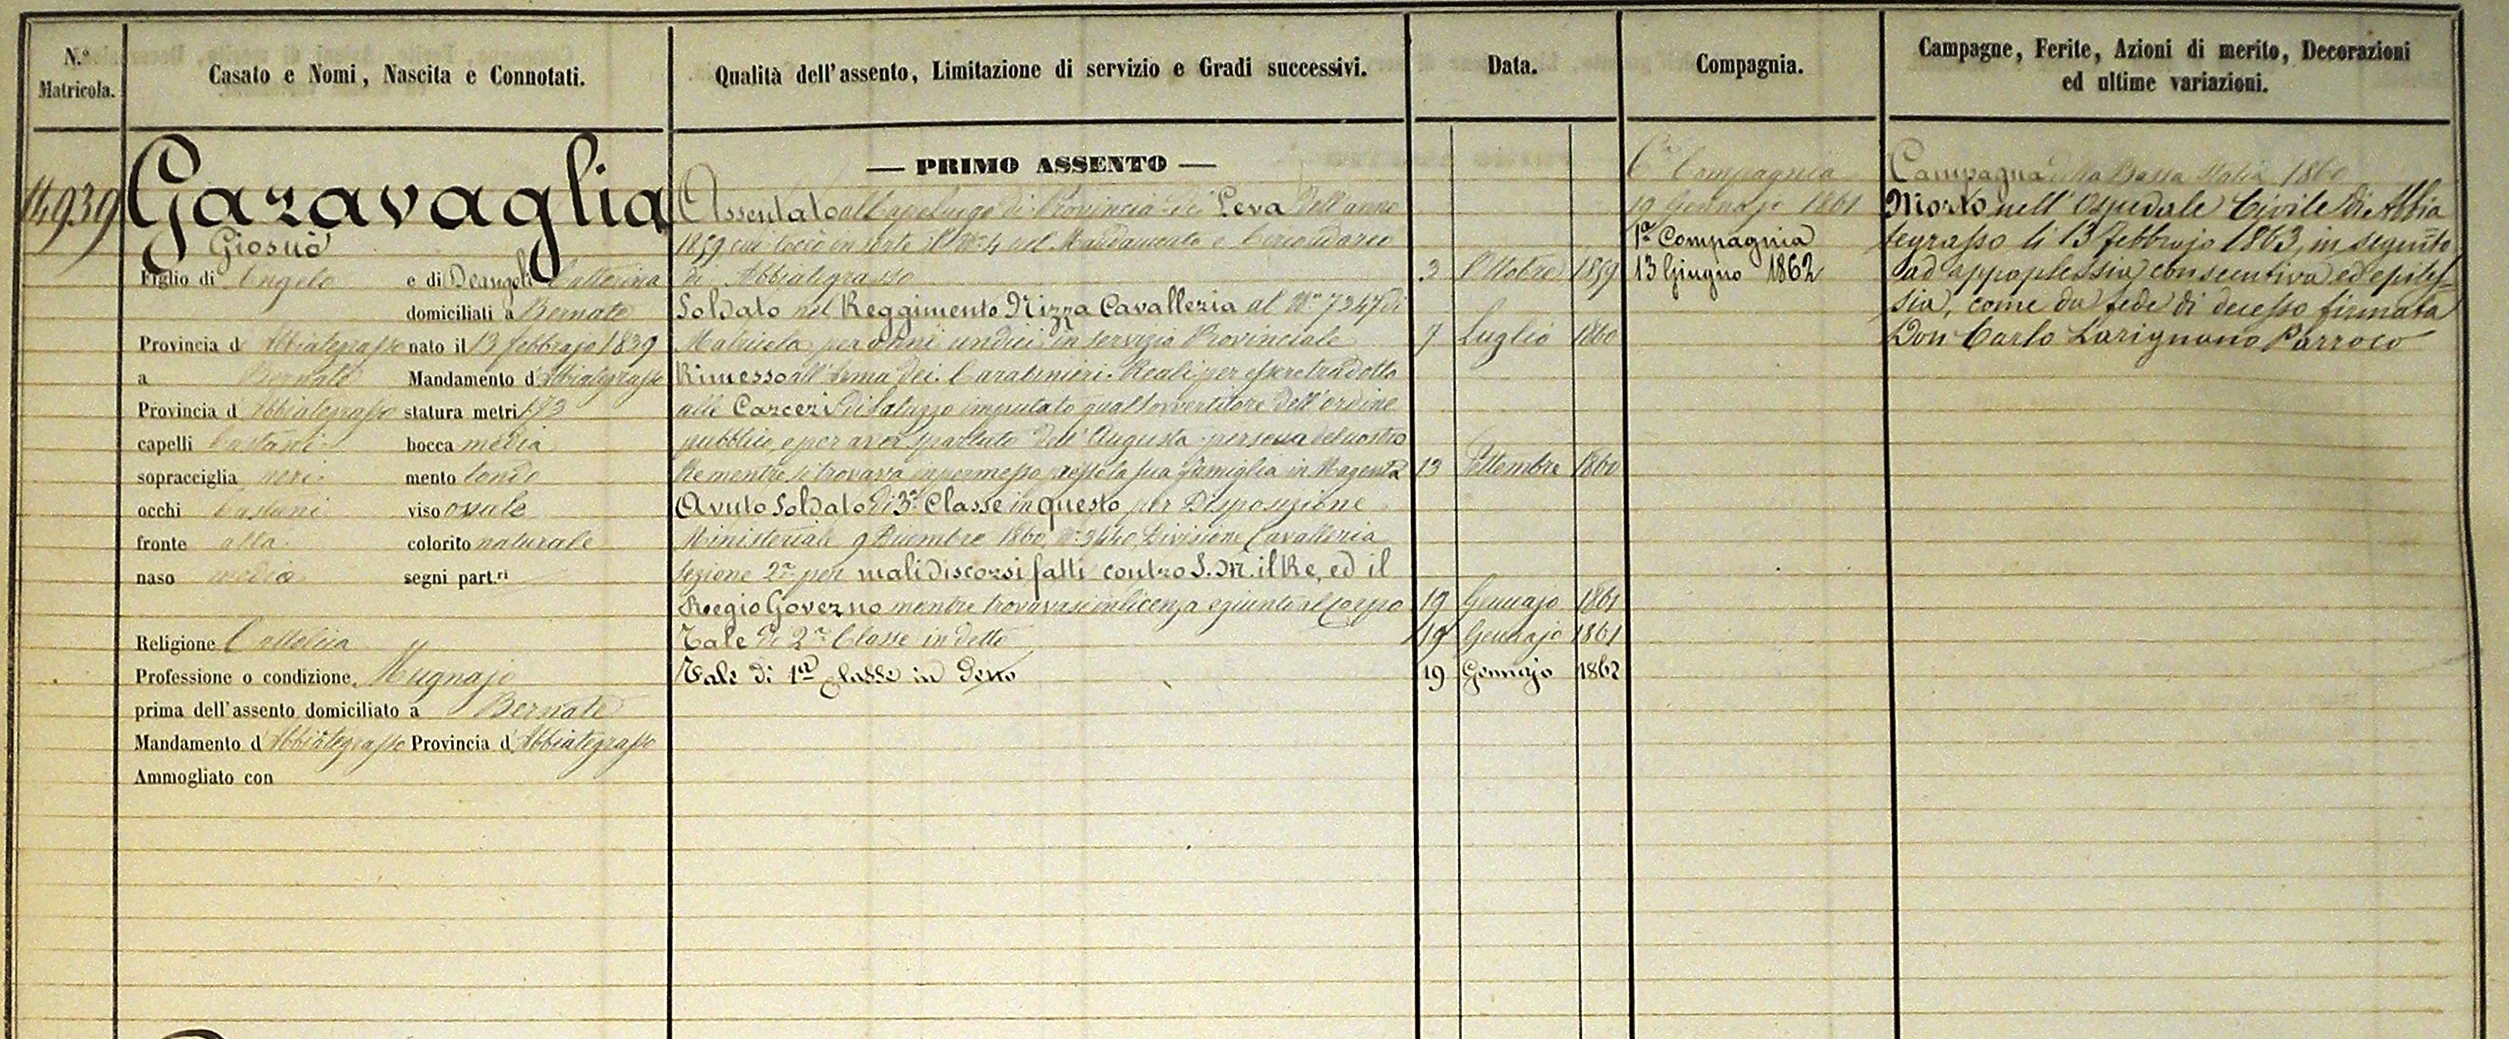 N.º Matricola.
Casato e Nomi, Nascita e Connotati.
Qualità dell'assento, Limitazione di servizio e Gradi successivi.
Data.
Compagnia.
Campagne, Ferite, Azioni di merito, Decorazioni
ed ultime variazioni.
14939
Garavaglia
Giosuè
Figlio di Angelo e di Deangeli Catterina
domiciliati a Bernate
Provincia d Abbiategrasso nato il 13 febbrajo 1839
a Bernate Mandamento d'Abbiategrasso
Provincia d Abbiategrasso statura metri 1.73
capelli Castani bocca media
sopracciglia neri mento tondo
occhi Castani viso ovale
fronte alta colorito naturale
naso medio segni part.ri
Religione Cattolica
Professione o condizione Mugnajo
prima dell'assento domiciliato a Bernate
Mandamento d'Abbiategrasso Provincia d'Abbiategrasso
Ammogliato con
— PRIMO ASSENTO —
Assentato all Capoluogo di Provincia di Leva dell'anno
1859 cui toccò in sorte il N. 4 nel Mandamento e Circondario
di Abbiategrasso 3 Ottobre 1859
Soldato nel Reggimento Nizza Cavalleria al N.º 7347 di
Matricola per anni undici in servizio Provinciale 7 Luglio 1860
Rimesso all'Arma dei Carabinieri Reali per essere tradotto
alle Carceri di Saluzzo imputato qual sovvertitore dell'ordine
pubblico, e per aver sparlato dell'Augusta persona del nostro
Re mentre si trovava in permesso presso la sua famiglia in Magenta 13 Settembre 1860
Avuto Soldato di 3ª Classe in questo per Disposizione
Ministeriale 9 Dicembre 1860, N.º 3440, Divisione Cavalleria
Sezione 2ª per mali discorsi fatti contro S. M. il Re, ed il
Regio Governo mentre trovavasi in licenza e giunto al Corpo 19 Gennajo 1861
Tale di 2ª Classe in detto 19 Gennajo 1861
Tale di 1ª Classe in detto 19 Gennajo 1862
Cª Compagnia
19 Gennajo 1861
1ª Compagnia
13 Giugno 1862
Campagna della Bassa Italia 1860
Morto nell'Ospedale Civile di Abbia
tegrasso li 13 Febbrajo 1863, in seguito
ad appoplessia consecutiva ed epiles=
sia, come da fede di decesso firmata
Don Carlo Parroco